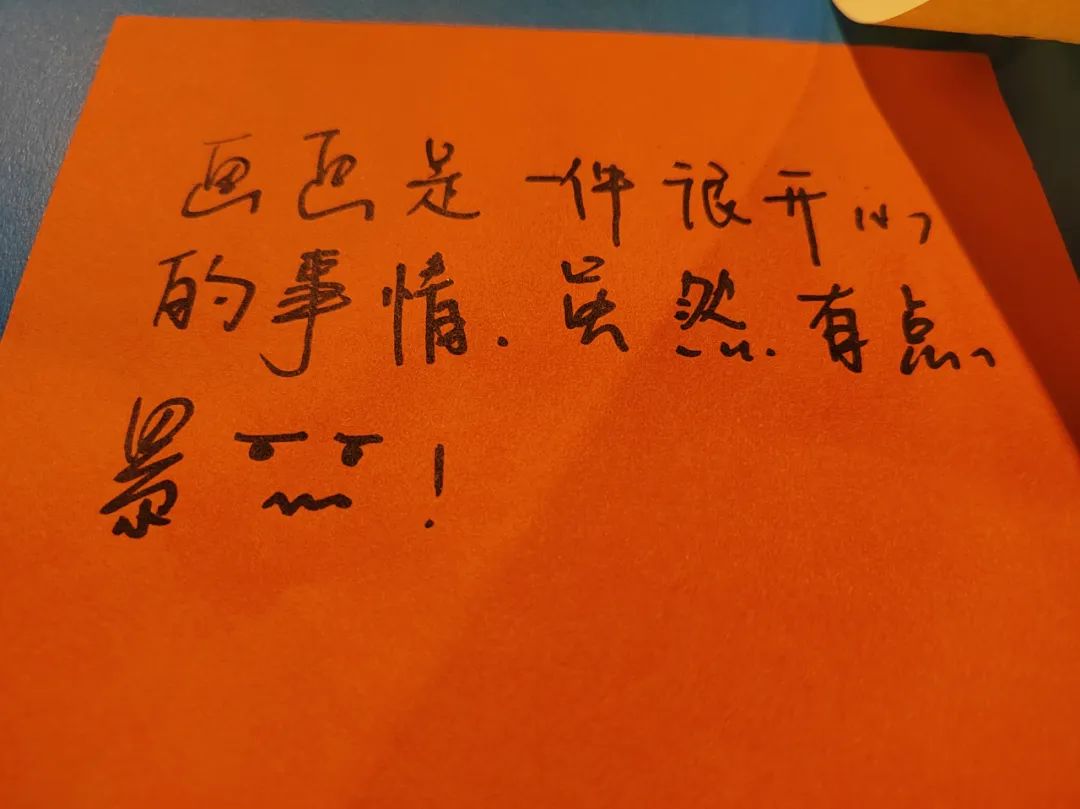 画画是一件很开心
的事情.虽然有点
累!